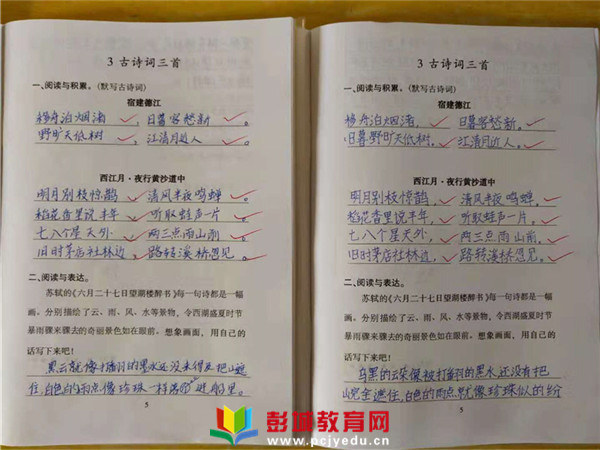 3 古诗词三首
一、阅读与积累。(默写古诗词)
宿建德江
移舟泊烟渚，日暮客愁新。
野旷天低树，江清月近人。
西江月·夜行黄沙道中
明月别枝惊鹊，清风半夜鸣蝉。
稻花香里说丰年，听取蛙声一片。
七八个星天外，两三点雨山前。
旧时茅店社林边，路转溪桥忽见。
二、阅读与表达。
苏轼的《六月二十七日望湖楼醉书》每一句诗都是一幅
画，分别描绘了云、雨、风、水等景物，令西湖盛夏时节
暴雨骤来骤去的奇丽景色如在眼前。想象画面，用自己的
话写下来吧！
黑云就像打翻的墨水还没来得及把山遮
住，白色的雨点像珍珠一样落 进船里。
5
3 古诗词三首
一、阅读与积累。(默写古诗词)
宿建德江
移舟泊烟渚，日暮客愁新。
日暮野旷天低树，江清月近人。
西江月·夜行黄沙道中
明月别枝惊鹊，清风半夜鸣蝉，
稻花香里说丰年，听取蛙声一片。
七八个星天外，两三点雨山前，
旧时茅店社林边，路转溪桥忽见。
二、阅读与表达。
苏轼的《六月二十七日望湖楼醉书》每一句诗都是一幅
画，分别描绘了云、雨、风、水等景物，令西湖盛夏时节
暴雨骤来骤去的奇丽景色如在眼前。想象画面，用自己的
话写下来吧！
乌黑的云像被打翻的黑水还没有把
山完全遮住，白色的雨点就像珍珠似的纷
5
彭城教育网
www.pcjyedu.cn